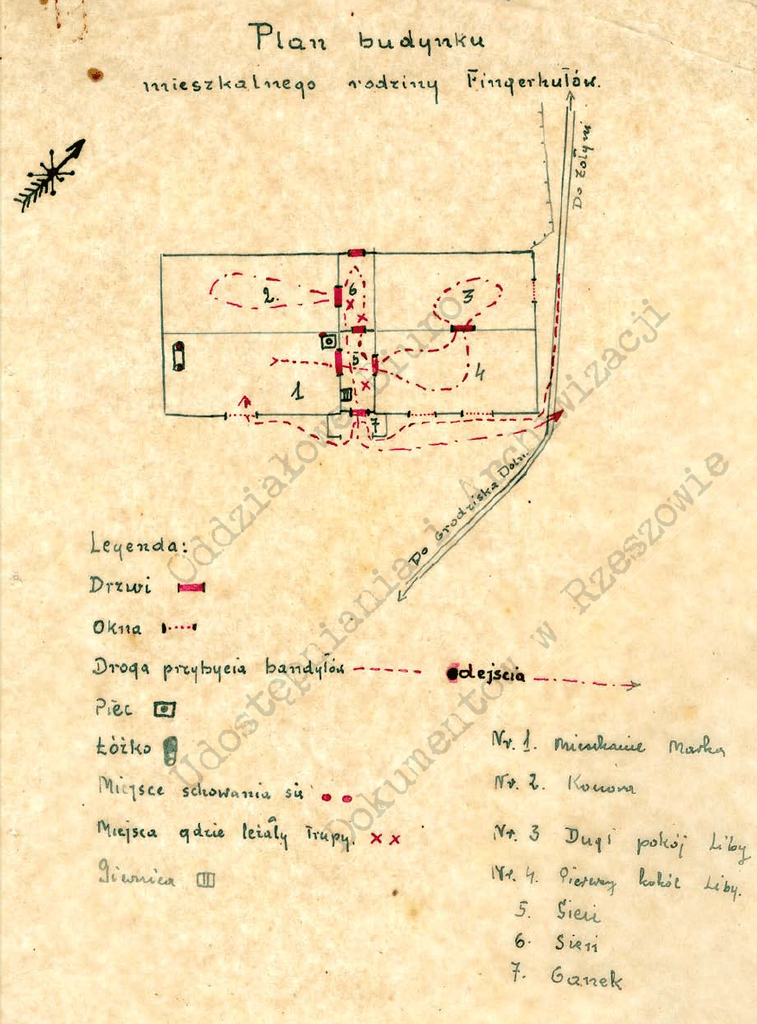 Plan budynku
mieszkalnego rodziny Fingerhutów.
Do Żołyni
2.
6
3
5
1
4
7
Do Grodziska Doln.
Legenda:
Drzwi
Okna
Droga przybycia bandytów
Odejścia
Piec
Łóżko
Miejsce schowania się
Miejsca gdzie leżały trupy.
Piwnica
Nr. 1. Mieszkanie Marka
Nr. 2. Komora
Nr. 3 Dugi pokój Liby
Nr. 4. Pierwszy Liby.
5. Sień
6. Sień
7. Ganek
Oddziałowe Biuro
Udostępniania i Archiwizacji
Dokumentów w Rzeszowie